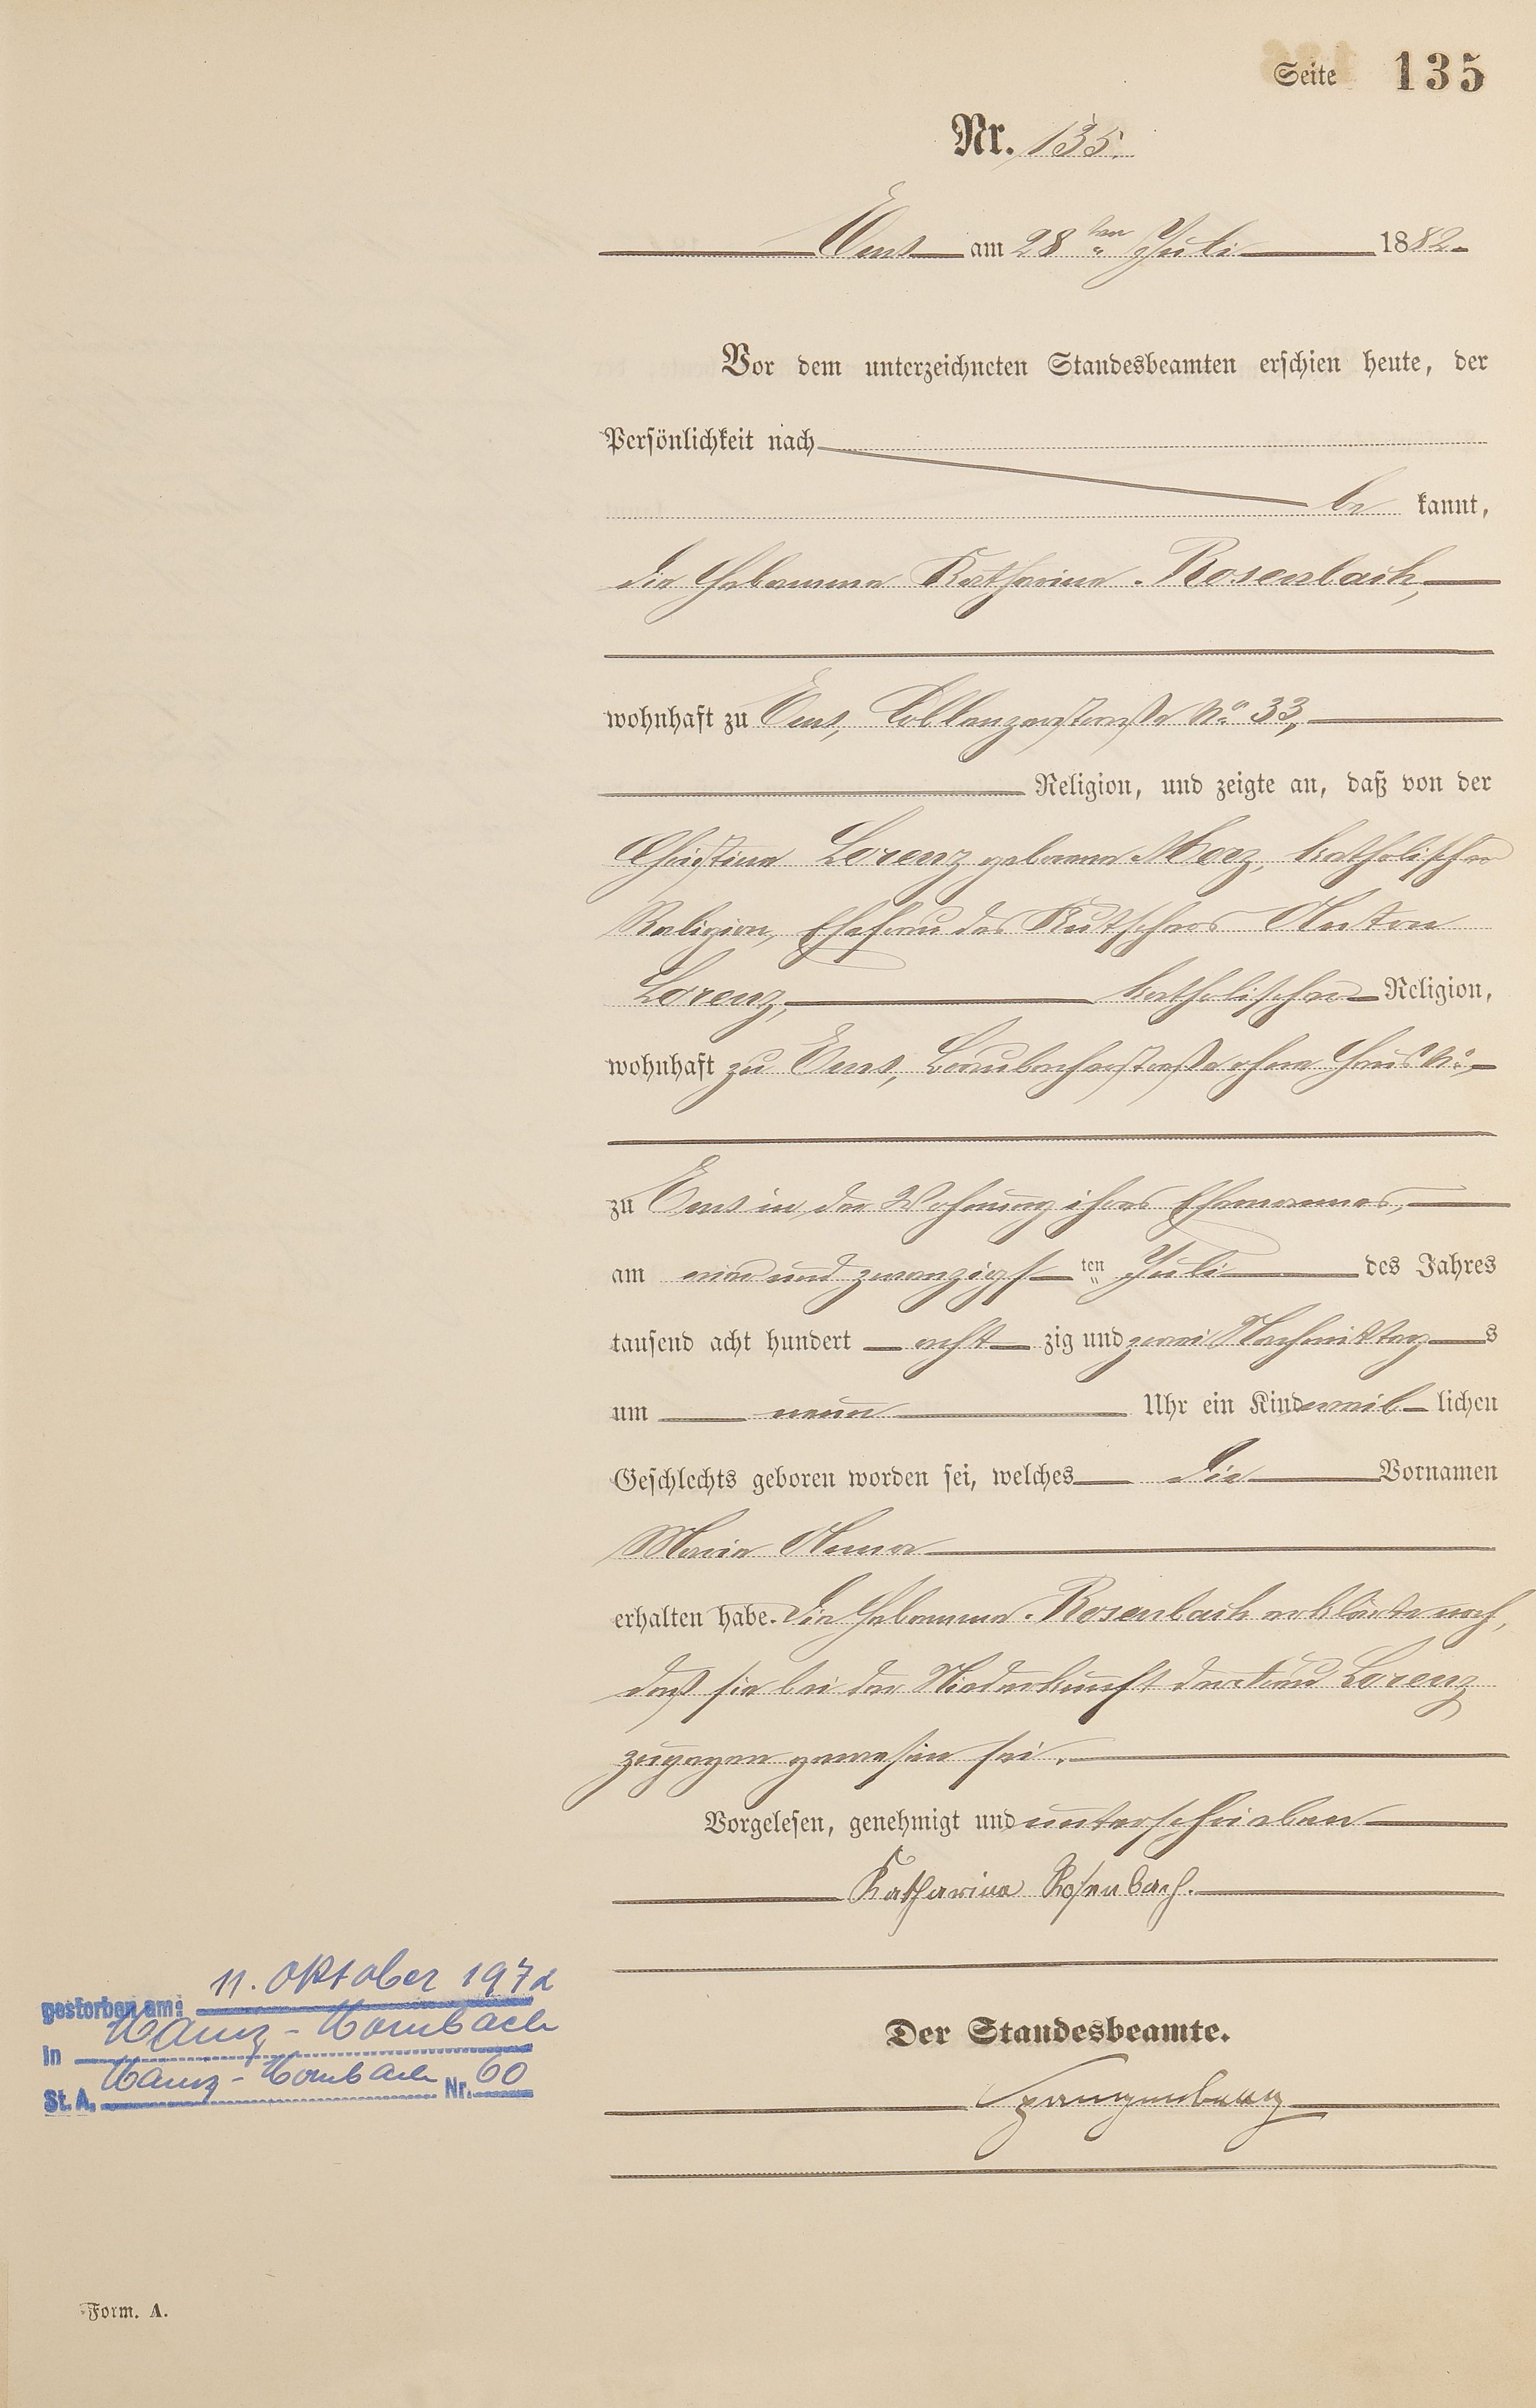 Seite 135
Nr. 135.
Ems am 28ten Juli 1882
Vor dem unterzeichneten Standesbeamten erschien heute, der
Persönlichkeit nach
be kannt,
die Hebamme Katharina Rosenbach,
wohnhaft zu Ems, Coblenzerstraße No 33,
Religion, und zeigte an, daß von der
Christina Lorenz geborene Merz, katholischer
Religion, Ehefrau des Kutschers Anton
Lorenz, katholischer Religion,
wohnhaft zu Ems, Braubacherstraße ohne Haus No,
zu Ems in der Wohnung ihres Ehemannes,
am ein und zwanzigs ten Juli des Jahres
tausend acht hundert acht zig und zwei Nachmittag s
um neun Uhr ein Kind weib lichen
Geschlechts geboren worden sei, welches die Vornamen
Maria Anna
erhalten habe. Die Hebamme Rosenbach erklärte noch,
daß sie bei der Niederkunft der Frau Lorenz
zugegen gewesen sei.
Vorgelesen, genehmigt und unterschrieben
Katharina Rosenbach.
Der Standesbeamte.
Spangenberg
gestorben am: 11. Oktober 1972
in Mainz-Mombach
St. A. Mainz-Mombach Nr. 60
Form. A.